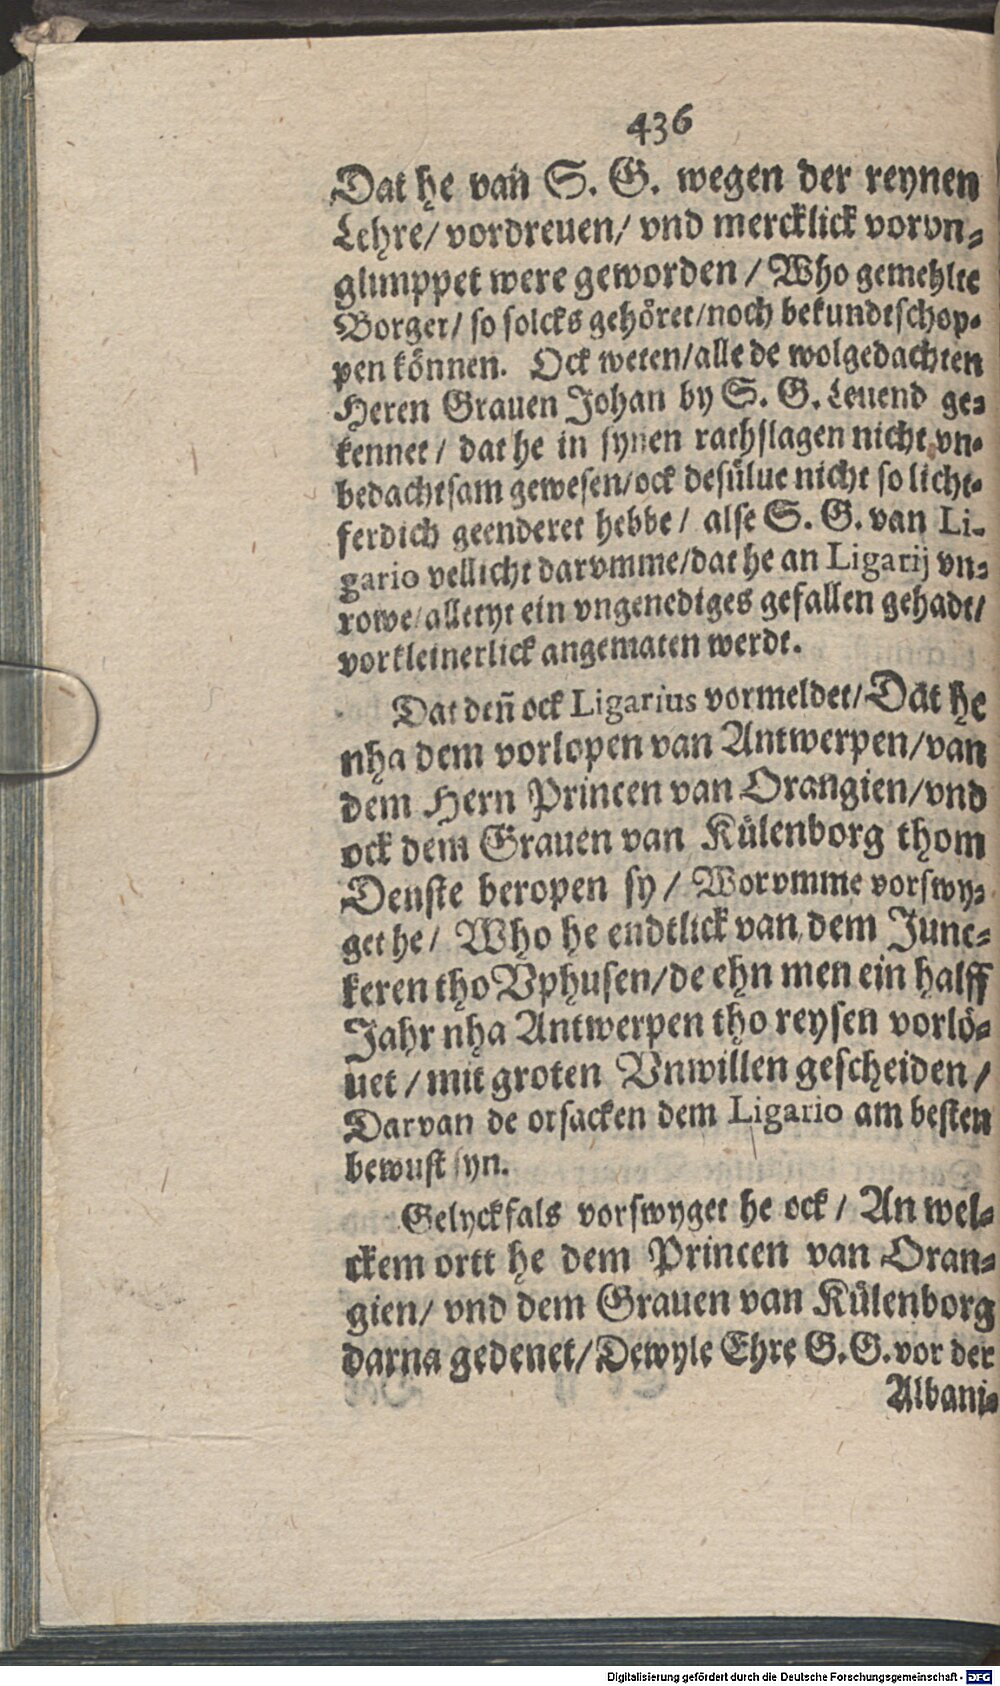 436
Dat he van S. G. wegen der reynen
Lehre/ vordreuen/ vnd mercklick vorvn-
glimppet were geworden / Who gemehlte
Borger/ so solcks gehöret/noch bekundtschop-
pen können. Ock weten/alle de wolgedachten
Heren Grauen Johan by S. G. Leuend ge-
kennet / dat he in synen rathslagen nicht vn-
bedachtsam gewesen/ock desülue nicht so licht-
ferdich geenderet hebbe / alse S. G. van Li-
gario vellicht darvmme/dat he an Ligarij vn-
rowe/alletyt ein vngenediges gefallen gehadt/
vorkleinerlick angematen werdt.
Dat deñ ock Ligarius vormeldet/Dat he
nha dem vorlopen van Antwerpen/van
dem Hern Princen van Orangien/vnd
ock dem Grauen van Külenborg thom
Denste beropen sy / Worvmme vorswy-
get he/ Who he endtlick van dem Junc-
keren tho Vphusen/de ehn men ein halff
Jahr nha Antwerpen tho reysen vorlö-
uet / mit groten Vnwillen gescheiden /
Darvan de orsacken dem Ligario am besten
bewust syn.
Gelyckfals vorswyget he ock / An wel-
ckem ortt he dem Princen van Oran-
gien/ vnd dem Grauen van Külenborg
darna gedenet/Dewyle Ehre G.G.vor der
Albani-
Digitalisierung gefördert durch die Deutsche Forschungsgemeinschaft - DFG